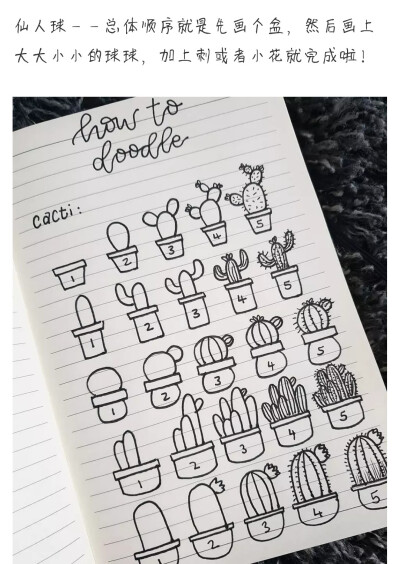 仙人球--总体顺序就是先画个盆，然后画上
大大小小的球球，加上刺或者小花就完成啦！
how to
doodle
cacti:
1 2 3 4 5
1 2 3 4 5
1 2 3 4 5
1 2 3 4 5
1 2 3 4 5